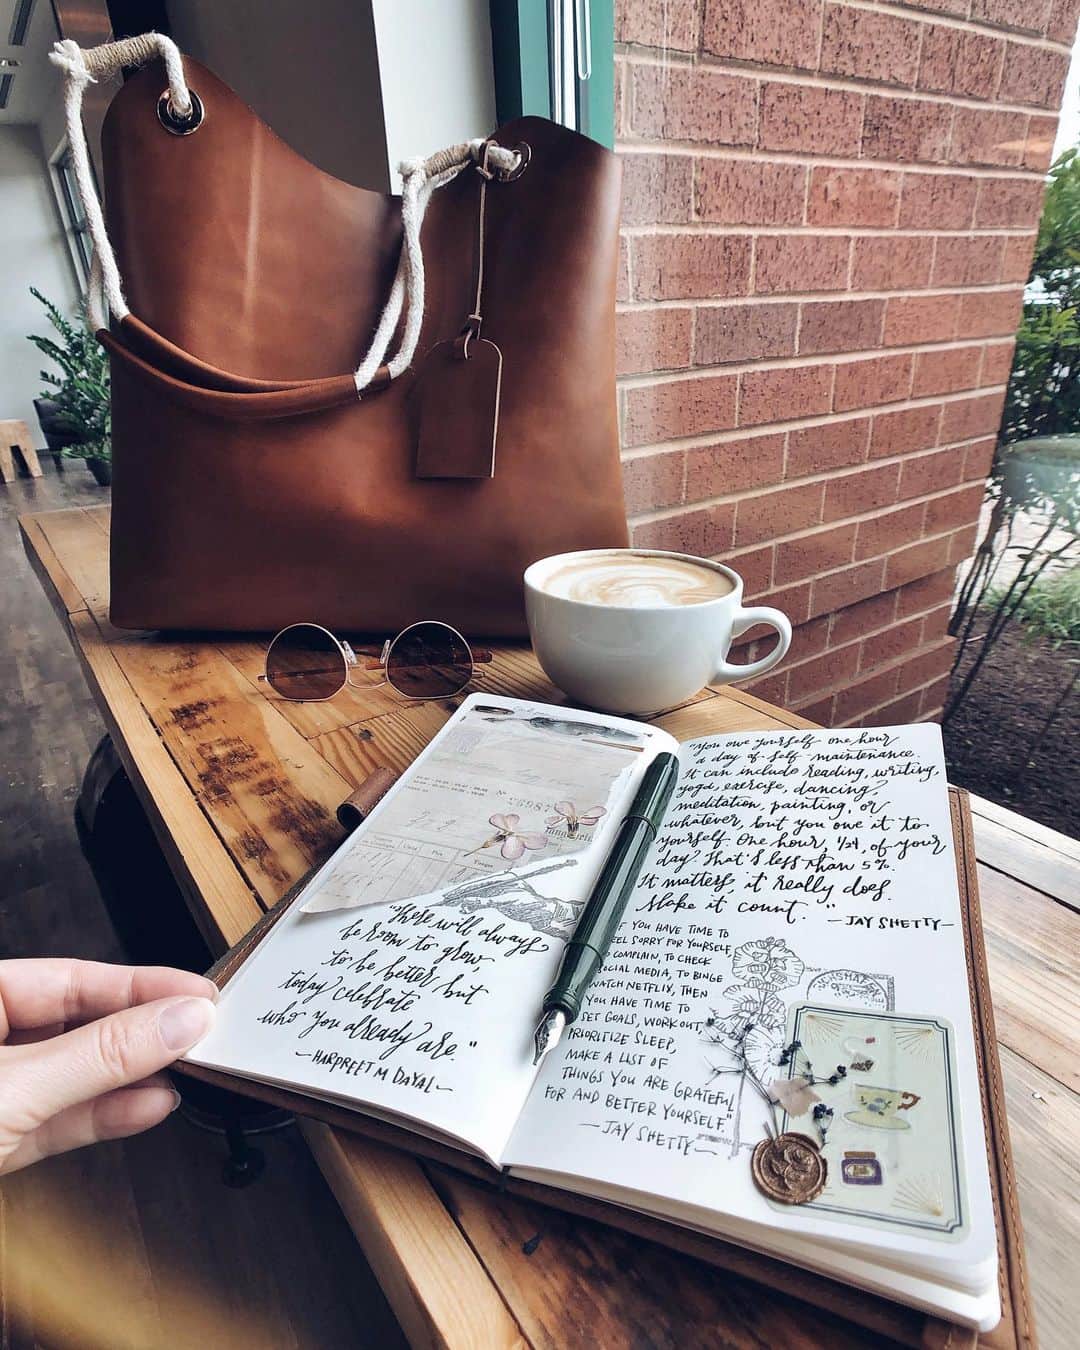 26987
"There will always
be room to grow,
to be better but
today celebrate
who you already are."
-HARPREET M DAYAL-
"You owe yourself one hour
a day of self maintenance.
It can include reading, writing,
yoga, exercise, dancing,
meditation, painting, or
whatever, but you owe it to
yourself. One hour, 1/24, of your
day? That's less than 5%.
It matters, it really does.
Make it count."
-JAY SHETTY-
IF YOU HAVE TIME TO
FEEL SORRY FOR YOURSELF,
TO COMPLAIN, TO CHECK
SOCIAL MEDIA, TO BINGE
WATCH NETFLIX, THEN
YOU HAVE TIME TO
SET GOALS, WORK OUT,
PRIORITIZE SLEEP,
MAKE A LIST OF
THINGS YOU ARE GRATEFUL
FOR AND BETTER YOURSELF."
-JAY SHETTY-